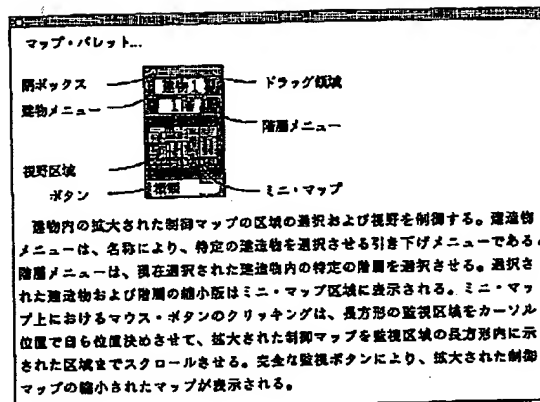 マップ・パレット...
閉ボックス
建物1
ドラッグ領域
建物メニュー
1階
階層メニュー
視野区域
ボタン
ミニ・マップ
建物内の拡大された制御マップの区域の選択および視野を制御する。建造物
メニューは、名称により、特定の建造物を選択させる引き下げメニューである。
階層メニューは、現在選択された建造物内の特定の階層を選択させる。選択さ
れた建造物および階層の縮小版はミニ・マップ区域に表示される。ミニ・マッ
プ上におけるマウス・ボタンのクリッキングは、長方形の監視区域をカーソル
位置で自ら位置決めさせて、拡大された制御マップを監視区域の長方形内に示
された区域までスクロールさせる。完全な監視ボタンにより、拡大された制御
マップの縮小されたマップが表示される。